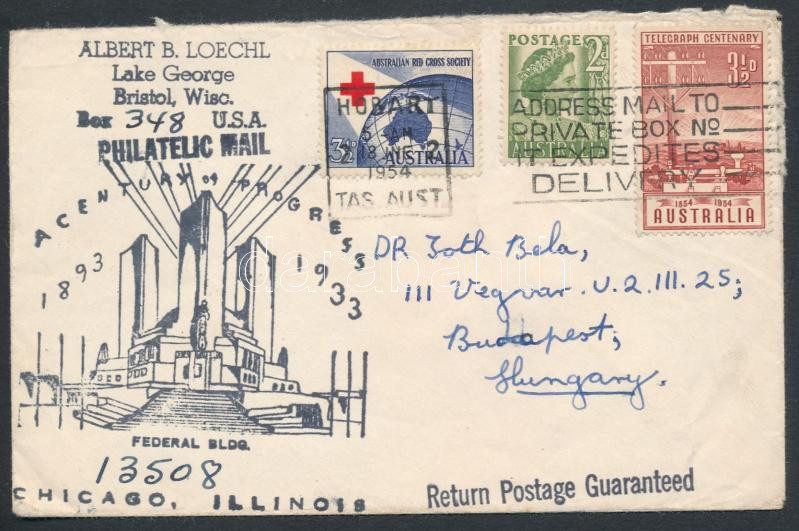 ALBERT B. LOECHL
Lake George
Bristol, Wisc.
Box 348 U.S.A.
PHILATELIC MAIL
A CENTURY OF PROGRESS
1893 1933
FEDERAL BLDG.
13508
CHICAGO, ILLINOIS
AUSTRALIAN RED CROSS SOCIETY
3½D AUSTRALIA
POSTAGE
2D
AUSTRALIA
TELEGRAPH CENTENARY
3½D
1854 1954
AUSTRALIA
HOBART
AM
1954
TAS. AUST
ADDRESS MAIL TO
PRIVATE BOX No
IT EXPEDITES
DELIVERY
DR Toth Bela,
III Vegvar. U.2.III.25;
Budapest;
Hungary.
Return Postage Guaranteed
darabanth